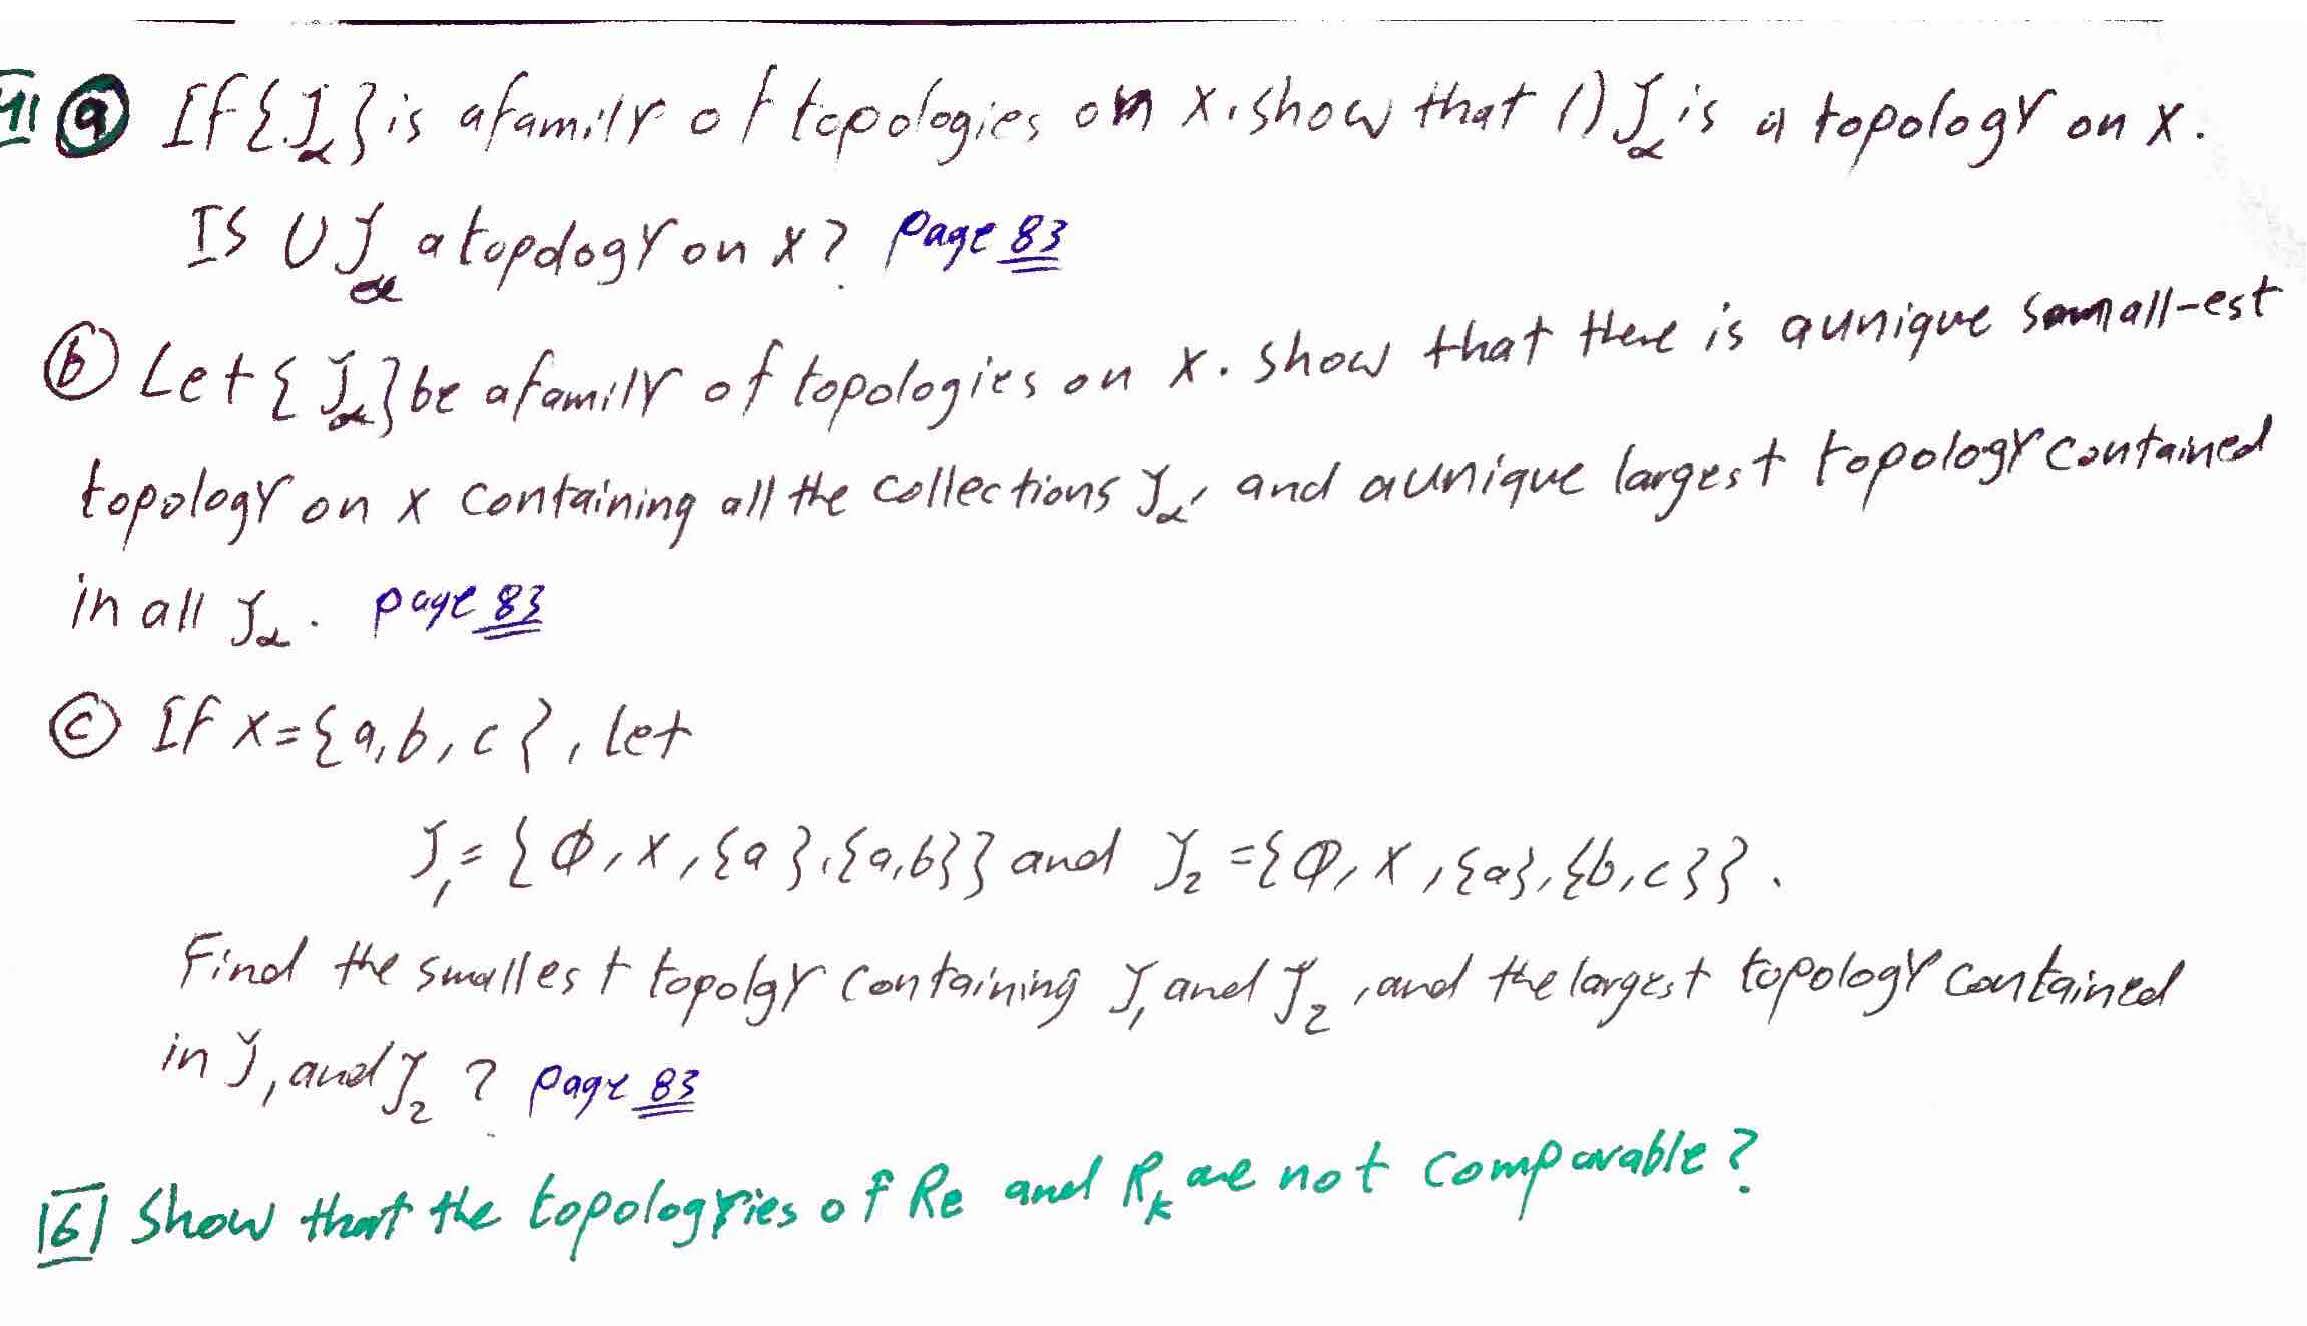 4 a If {J_α} is a family of topologies on X. show that ∩ J_α is a topology on X.
Is ∪ J_α a topology on X? Page 83
b Let {J_α} be a family of topologies on X. Show that there is a unique small-est
topology on X containing all the collections J_α, and a unique largest topology contained
in all J_α. page 83
c If X={a,b,c}, let
J_1={Φ,X,{a},{a,b}} and J_2={Φ,X,{a},{b,c}}.
Find the smallest topolgy containing J_1 and J_2, and the largest topology contained
in J_1 and J_2? page 83
6 Show that the topologyies of Re and R_k are not comparable?